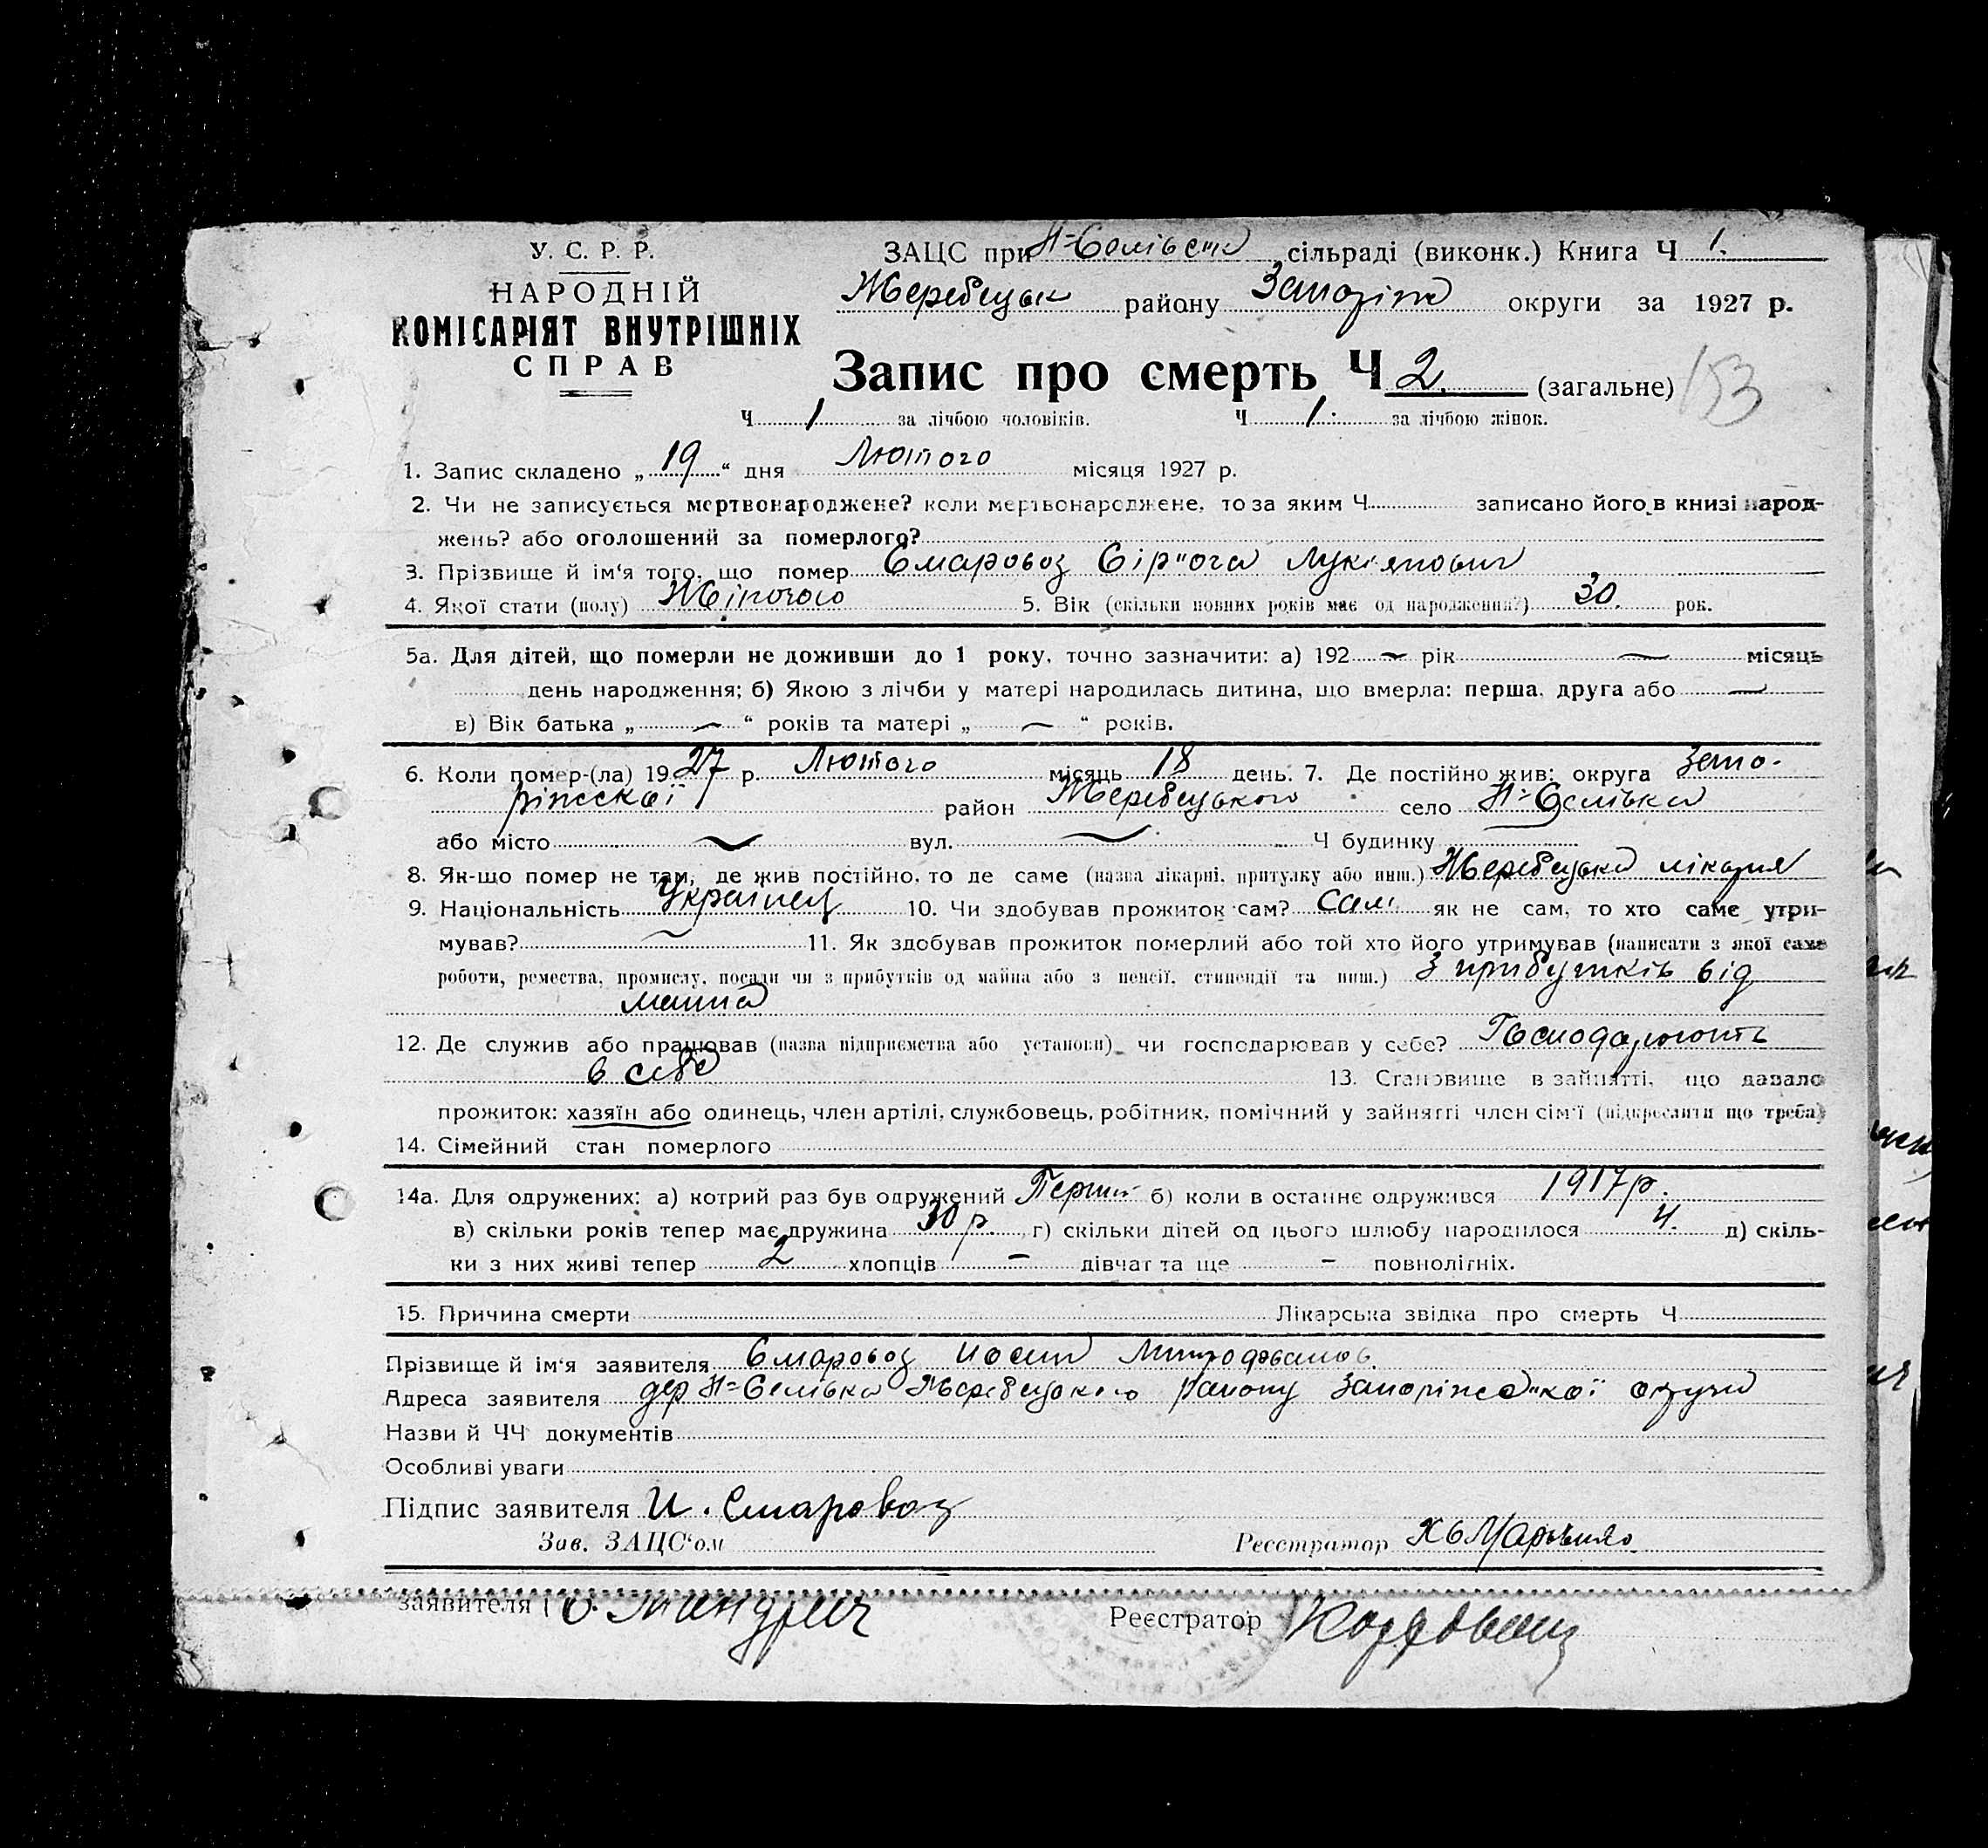 У. С. Р. Р.
НАРОДНІЙ
КОМІСАРІЯТ ВНУТРІШНІХ
СПРАВ
ЗАЦС при Н=Селівськ сільраді (виконк.) Книга Ч 1.
Жеребецьк району Запоріж округи за 1927 р.
Запис про смерть Ч 2. (загальне) 153
Ч 1 за лічбою чоловіків. Ч 1. за лічбою жінок.
1. Запис складено „19“ дня Лютого місяця 1927 р.
2. Чи не записується мертвонароджене? коли мертвонароджене, то за яким Ч записано його в книзі народ-
жень? або оголошений за померлого?
3. Прізвище й ім'я того, що помер Старовоз
4. Якої стати (полу) Жіночого 5. Вік (скільки повних років має од народження?) 30. рок.
5а. Для дітей, що померли не доживши до 1 року, точно зазначити: а) 192 — рік — місяць
день народження; б) Якою з лічби у матері народилась дитина, що вмерла: перша, друга або —
в) Вік батька „ — “ років та матері „ — “ років.
6. Коли помер-(ла) 1927 р. Лютого місяць 18 день. 7. Де постійно жив: округа Запо-
ріжської район Жеребецького село Н=Селівка
або місто — вул. — Ч будинку
8. Як-що помер не там, де жив постійно, то де саме (назва лікарні, притулку або инш.) Жеребецька лікарня
9. Національність Українец 10. Чи здобував прожиток сам? Сам як не сам, то хто саме утри-
мував? — 11. Як здобував прожиток померлий або той хто його утримував (написати з якої саме
роботи, ремества, промислу, посади чи з прибутків од майна або з пенсії, стипендії та инш.) З прибутків від
майна
12. Де служив або працював (назва підприємства або установи) чи господарював у себе? Господарюють
в себе 13. Становище в зайнятті, що давало
прожиток: хазяїн або одинець, член артілі, службовець, робітник, помічний у зайнятті член сім'ї (підкреслити що треба)
14. Сімейний стан померлого
14а. Для одружених: а) котрий раз був одружений Перший б) коли в останнє одружився 1917 р.
в) скільки років тепер має дружина 30 р. г) скільки дітей од цього шлюбу народилося 4. д) скіль-
ки з них живі тепер 2 хлопців — дівчат та ще — повнолітніх.
15. Причина смерти Лікарська звідка про смерть Ч
Прізвище й ім'я заявителя Старовоз Иосип
Адреса заявителя дер Н=Селівка Жеребецького району Запоріжської округи
Назви й ЧЧ документів
Особливі уваги
Підпис заявителя И. Старовоз
Зав. ЗАЦС'ом Реєстратор
заявителя Реєстратор